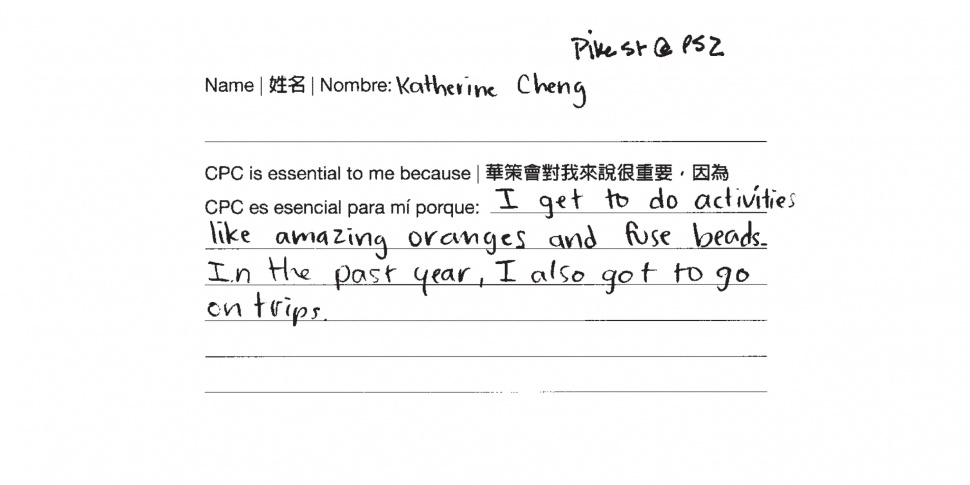 Pike st @ PS2
Name | 姓名 | Nombre: Katherine Cheng
CPC is essential to me because | 華策會對我來說很重要，因為
CPC es esencial para mí porque: I get to do activities
like amazing oranges and fuse beads.
In the past year, I also got to go
on trips.